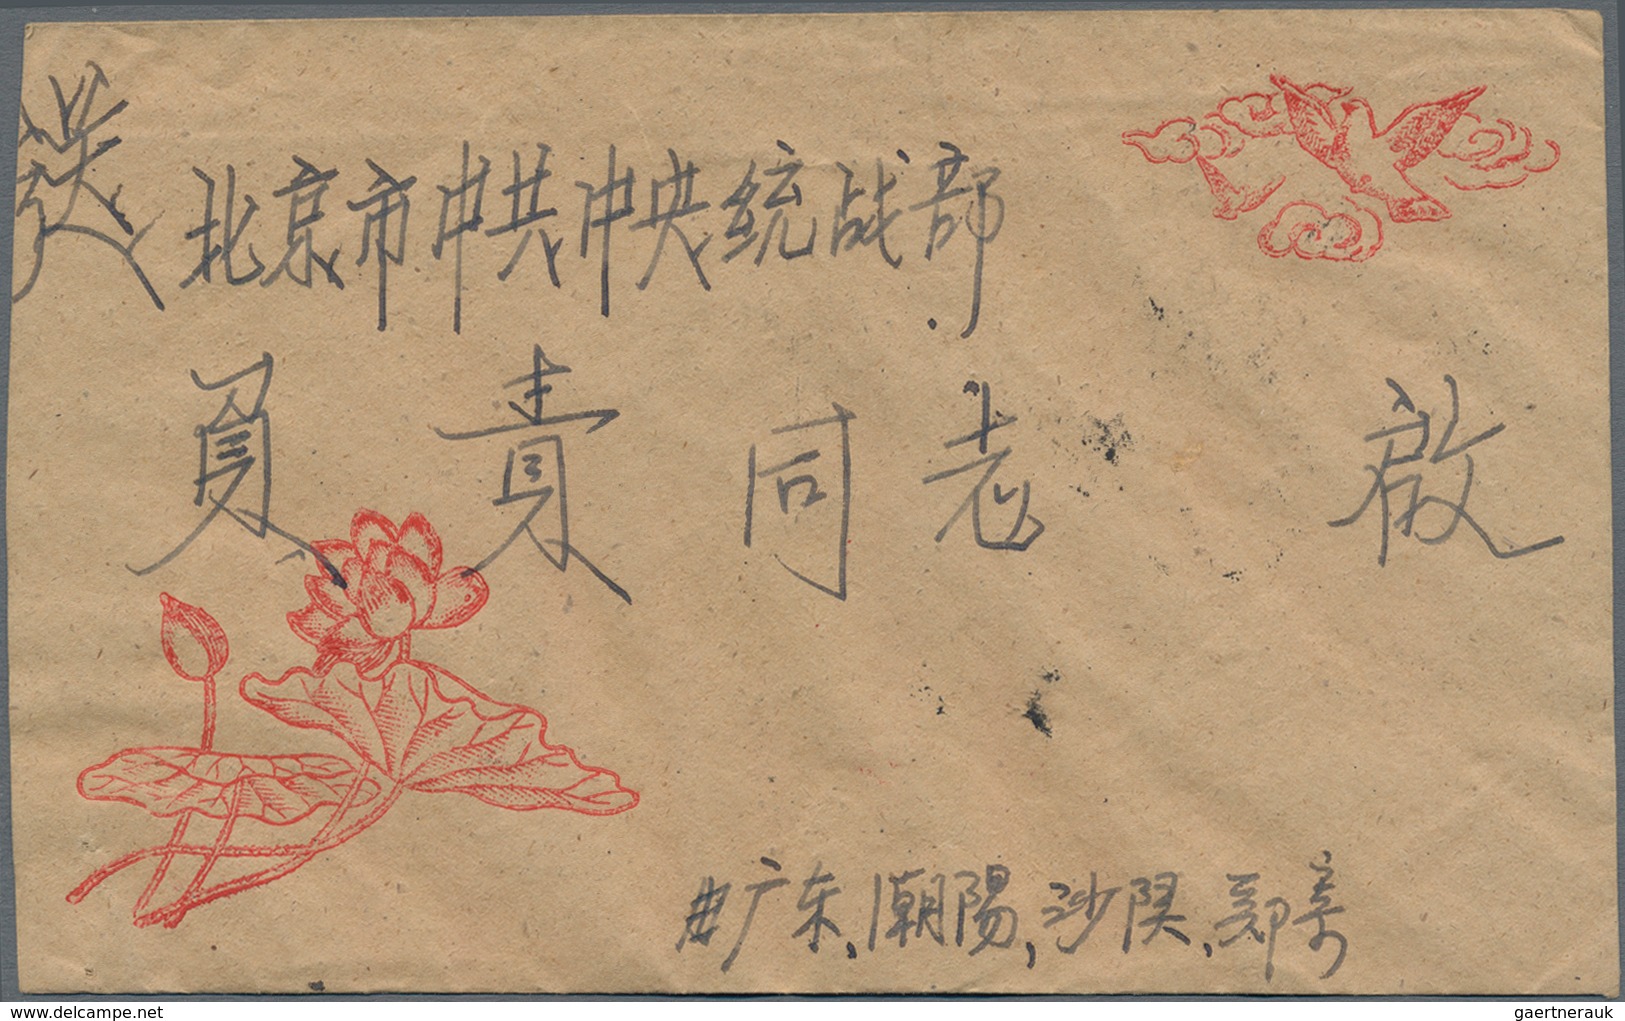 送 北京市中共中央统战部
負責同志 啟
由广东,潮陽,沙陇,郑寄
www.delcampe.net
gaertnerauk